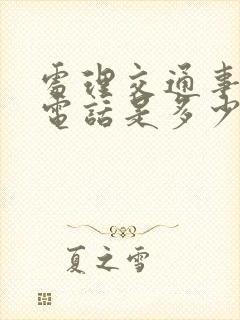 處理交通事
電話是多少
夏之雪